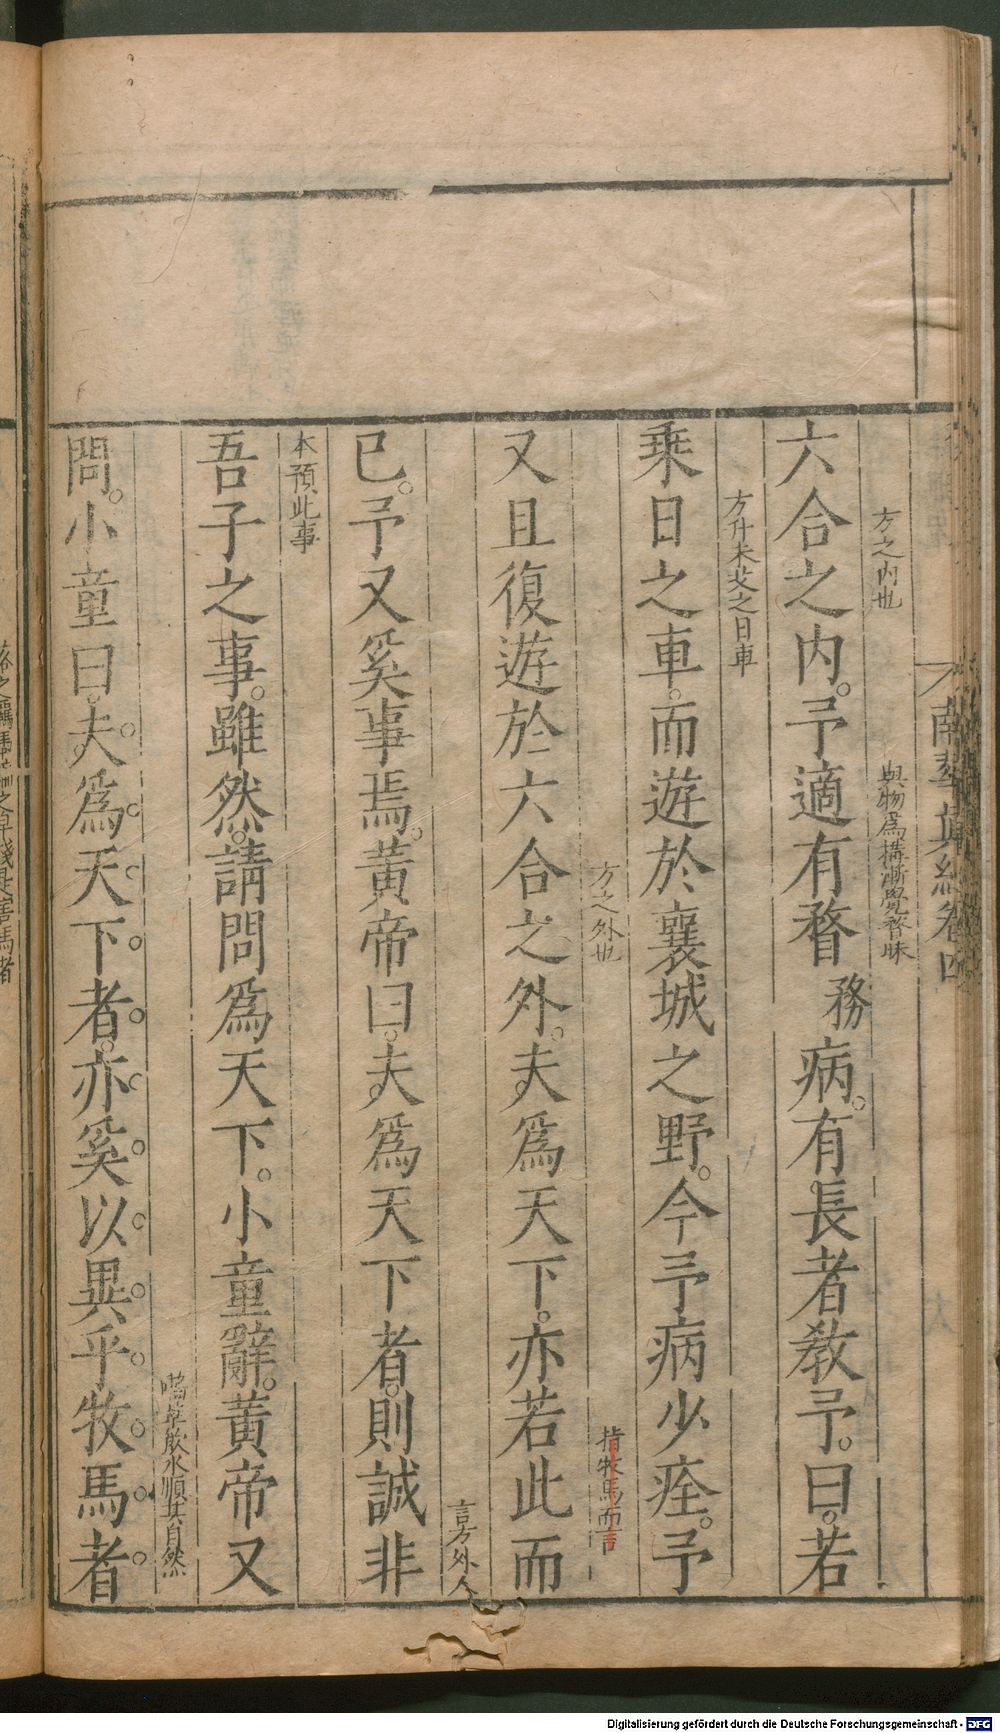 南華眞經卷四
方之內也　與物爲構漸覺瞀昧
六合之内。予適有瞀務病。有長者教予。曰。若
方升未艾之日車
乘日之車。而遊於襄城之野。今予病少痊。予
方之外也　指牧馬而言
又且復遊於六合之外。夫爲天下。亦若此而
言方外人
已。予又奚事焉。黃帝曰。夫爲天下者。則誠非
本預此事
吾子之事。雖然。請問爲天下。小童辭。黃帝又
嚙草飲水順其自然
問。小童曰。夫爲天下者。亦奚以異乎牧馬者
Digitalisierung gefördert durch die Deutsche Forschungsgemeinschaft - DFG